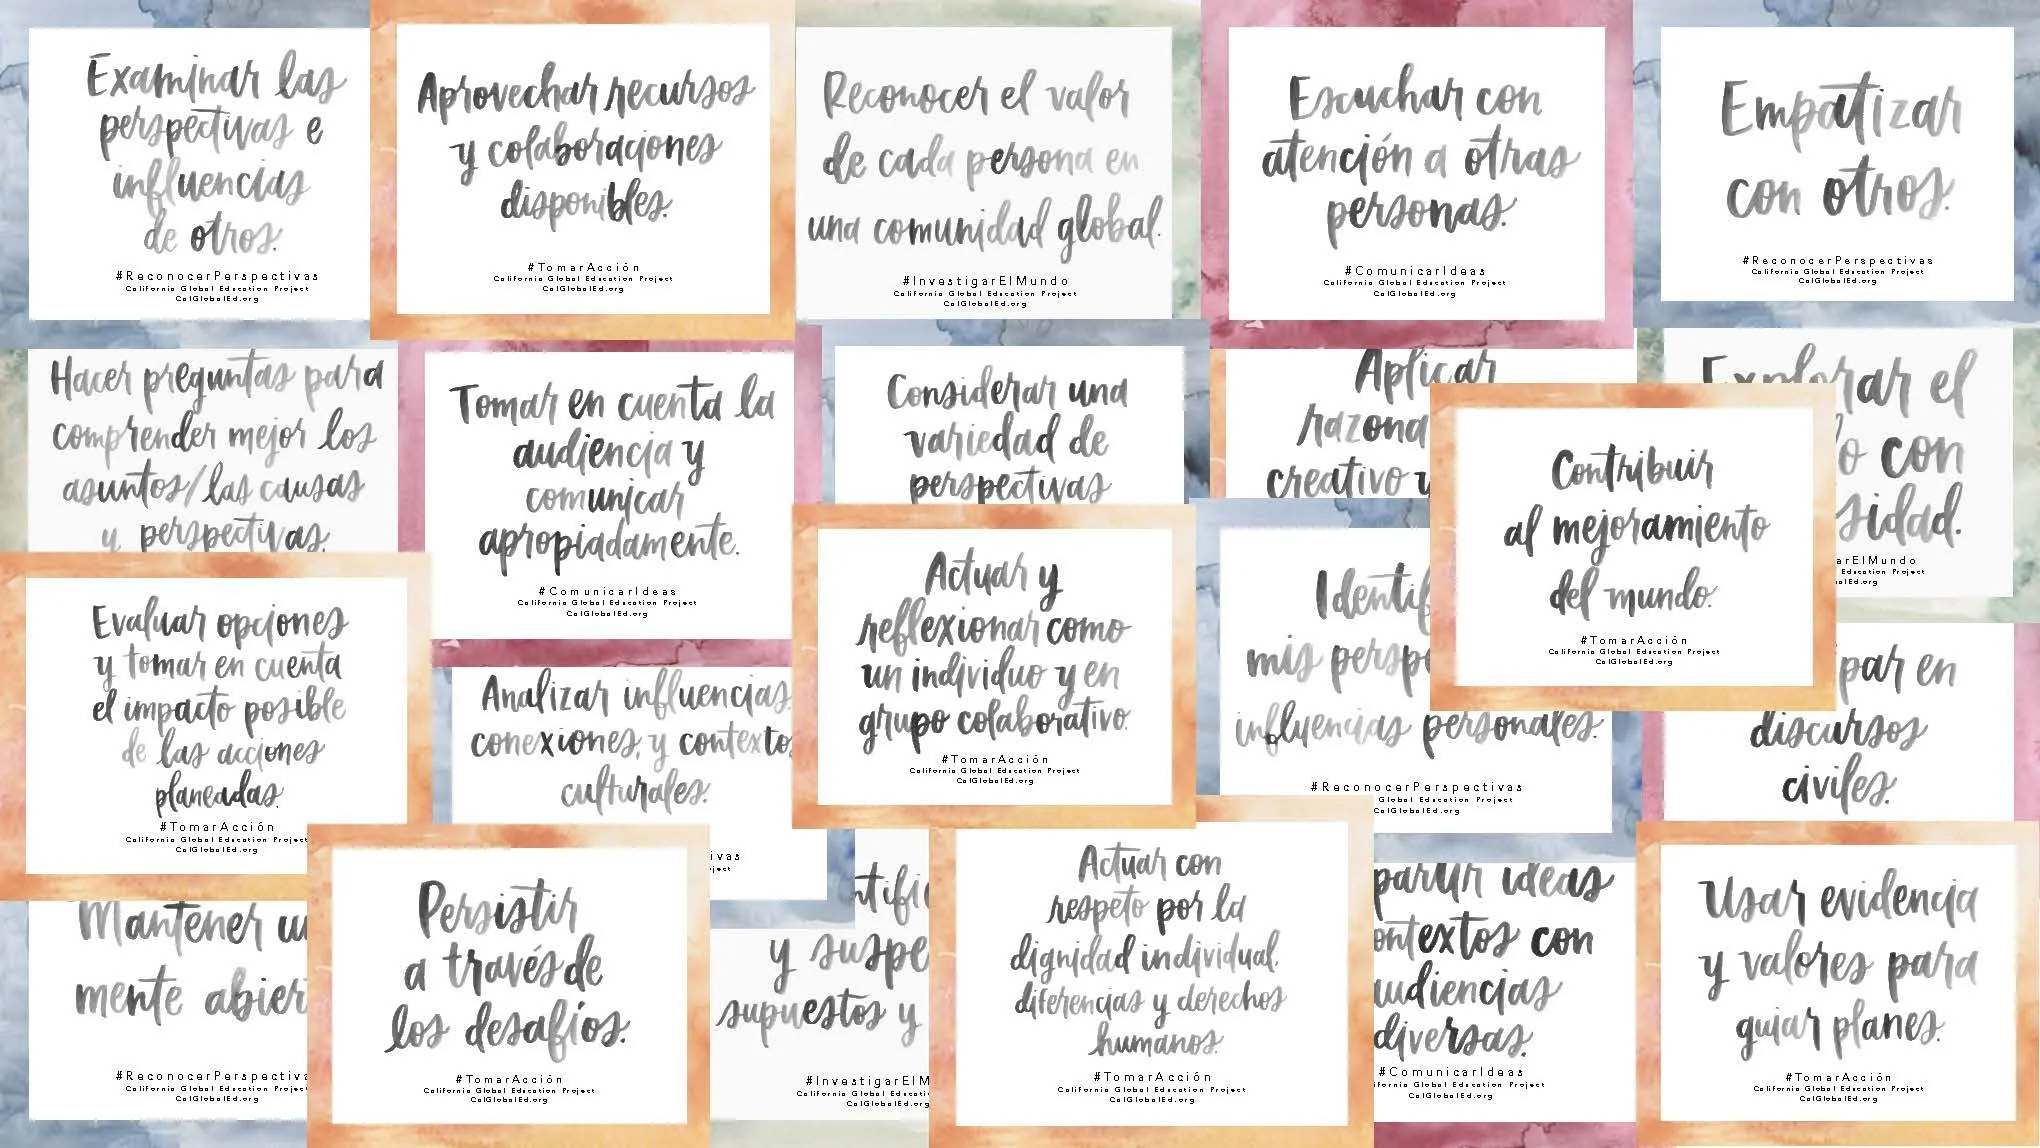 Examinar las
perspectivas e
influencias
de otros.
#ReconocerPerspectivas
California Global Education Project
CalGlobalEd.org
Aprovechar recursos
y colaboraciones
disponibles.
#TomarAcción
California Global Education Project
CalGlobalEd.org
Reconocer el valor
de cada persona en
una comunidad global.
#InvestigarElMundo
California Global Education Project
CalGlobalEd.org
Escuchar con
atención a otras
personas.
#ComunicarIdeas
California Global Education Project
CalGlobalEd.org
Empatizar
con otros.
#ReconocerPerspectivas
California Global Education Project
CalGlobalEd.org
Hacer preguntas para
comprender mejor los
asuntos/las causas
y perspectivas.
Tomar en cuenta la
audiencia y
comunicar
apropiadamente.
#ComunicarIdeas
California Global Education Project
CalGlobalEd.org
Considerar una
variedad de
perspectivas
Aplicar
razona
creativo y
Contribuir
al mejoramiento
del mundo.
#TomarAcción
California Global Education Project
CalGlobalEd.org
Explorar el
o con
sidad.
arElMundo
Education Project
alEd.org
Evaluar opciones
y tomar en cuenta
el impacto posible
de las acciones
planeadas.
#TomarAcción
California Global Education Project
CalGlobalEd.org
Analizar influencias,
conexiones, y contextos
culturales.
ivas
ject
Actuar y
reflexionar como
un individuo y en
grupo colaborativo.
#TomarAcción
California Global Education Project
CalGlobalEd.org
Identif
mis perspe
influencias personales.
#ReconocerPerspectivas
Global Education Project
GlobalEd.org
par en
discursos
civiles.
Mantener un
mente abier
#ReconocerPerspectiva
California Global Education Projec
CalGlobalEd.org
Persistir
a través de
los desafíos.
#TomarAcción
California Global Education Project
CalGlobalEd.org
ntific
y suspe
supuestos y
#InvestigarElM
California Global Educatio
CalGlobalEd.org
Actuar con
respeto por la
dignidad individual,
diferencias y derechos
humanos.
#TomarAcción
California Global Education Project
CalGlobalEd.org
partir ideas
ontextos con
udiencias
diversas.
#ComunicarIdeas
ifornia Global Education Project
CalGlobalEd.org
Usar evidencia
y valores para
guiar planes.
#TomarAcción
California Global Education Project
CalGlobalEd.org